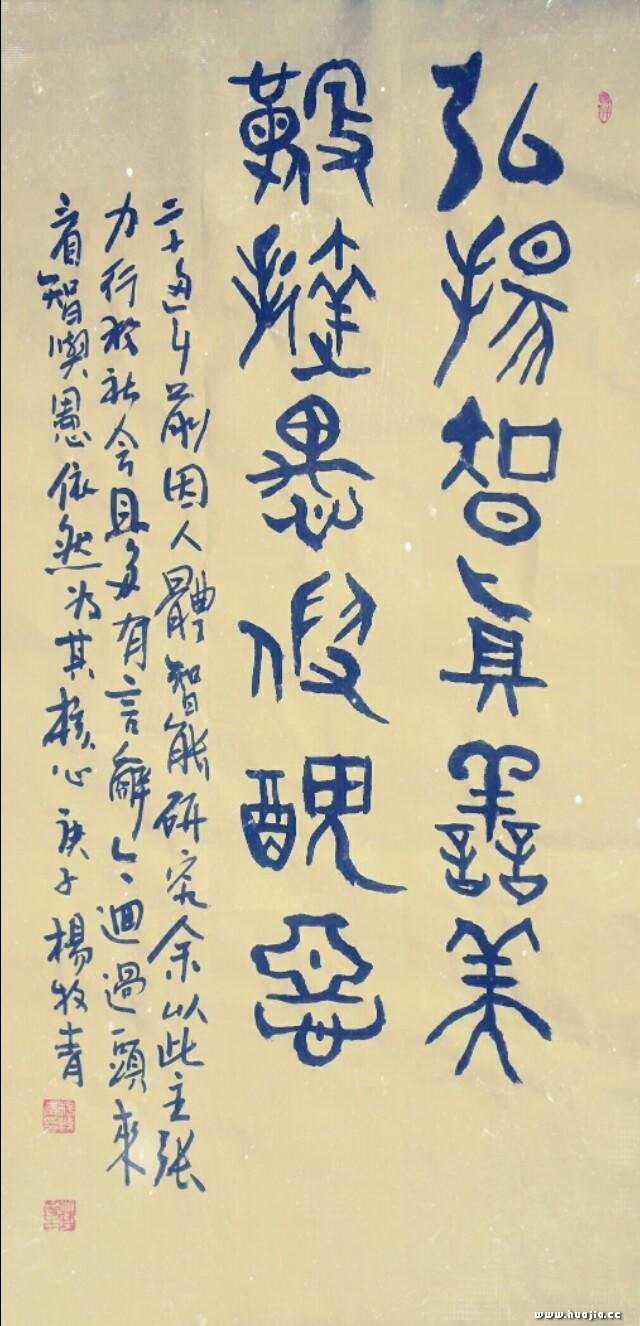 弘揚智真譱美
鞭撻愚假醜惡
二十多年前因人體智能研究余以此主张
力行於社会且多有言辭今迴過頭來
看智與愚依然为其核心庚子楊牧青
www.huajia.cc